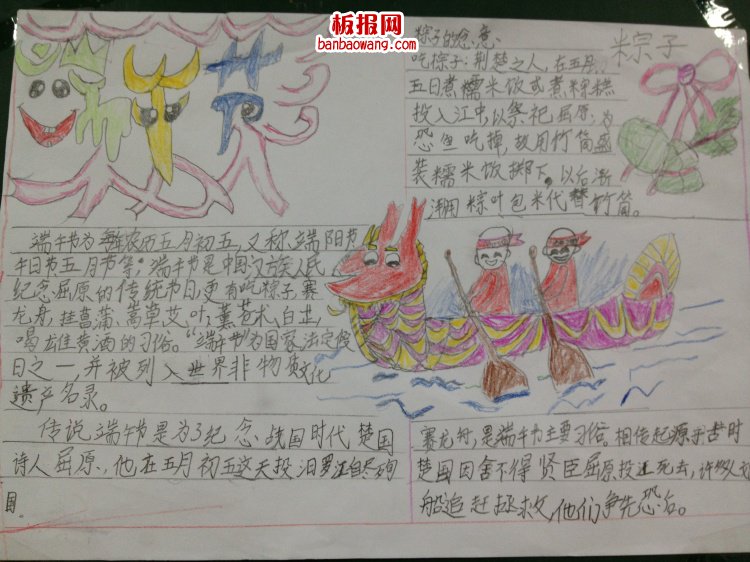 板报网
banbaowang.com
端午节
粽子的念意、
粽子
吃粽子:荆楚之人,在五月
五日煮糯米饭或煮粽糕
投入江中,以祭祀屈原,为
恐鱼吃掉,故用竹筒盛
装糯米饭掷下,以后渐
渐用粽叶包米代替竹筒。
端午节为每年农历五月初五,又称端阳节
午日节五月节等。端午节是中国汉族人民
纪念屈原的传统节日,更有吃粽子,赛
龙舟,挂菖蒲、蒿草艾叶,薰苍术,白芷,
喝雄黄酒的习俗。“端午节”为国家法定假
日之一,并被列入世界非物质文化
遗产名录。
传说端午节是为了纪念战国时代楚国
诗人屈原,他在五月初五这天投汨罗江自尽殉
国。
赛龙舟,是端午节主要习俗。相传起源于古时
楚国因舍不得贤臣屈原投江死去,许多人
船追赶拯救,他们争先恐后。